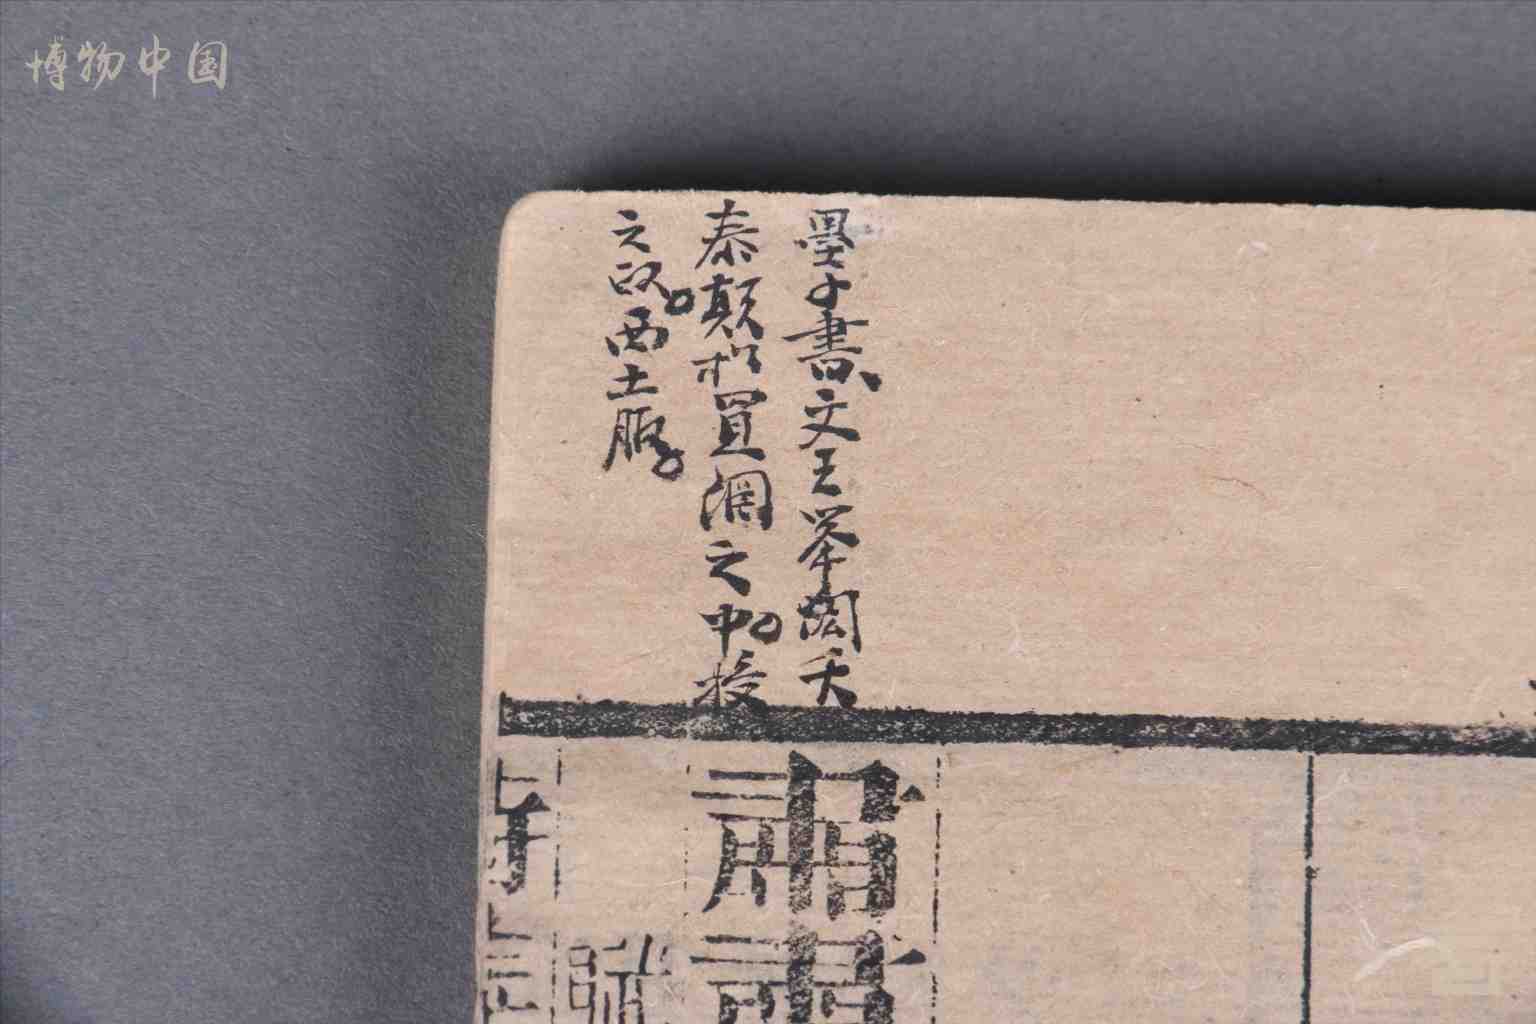 博物中国
墨子書、文王举閎夭
泰顛於罝網之中。授
之政。西土服。
肅肅